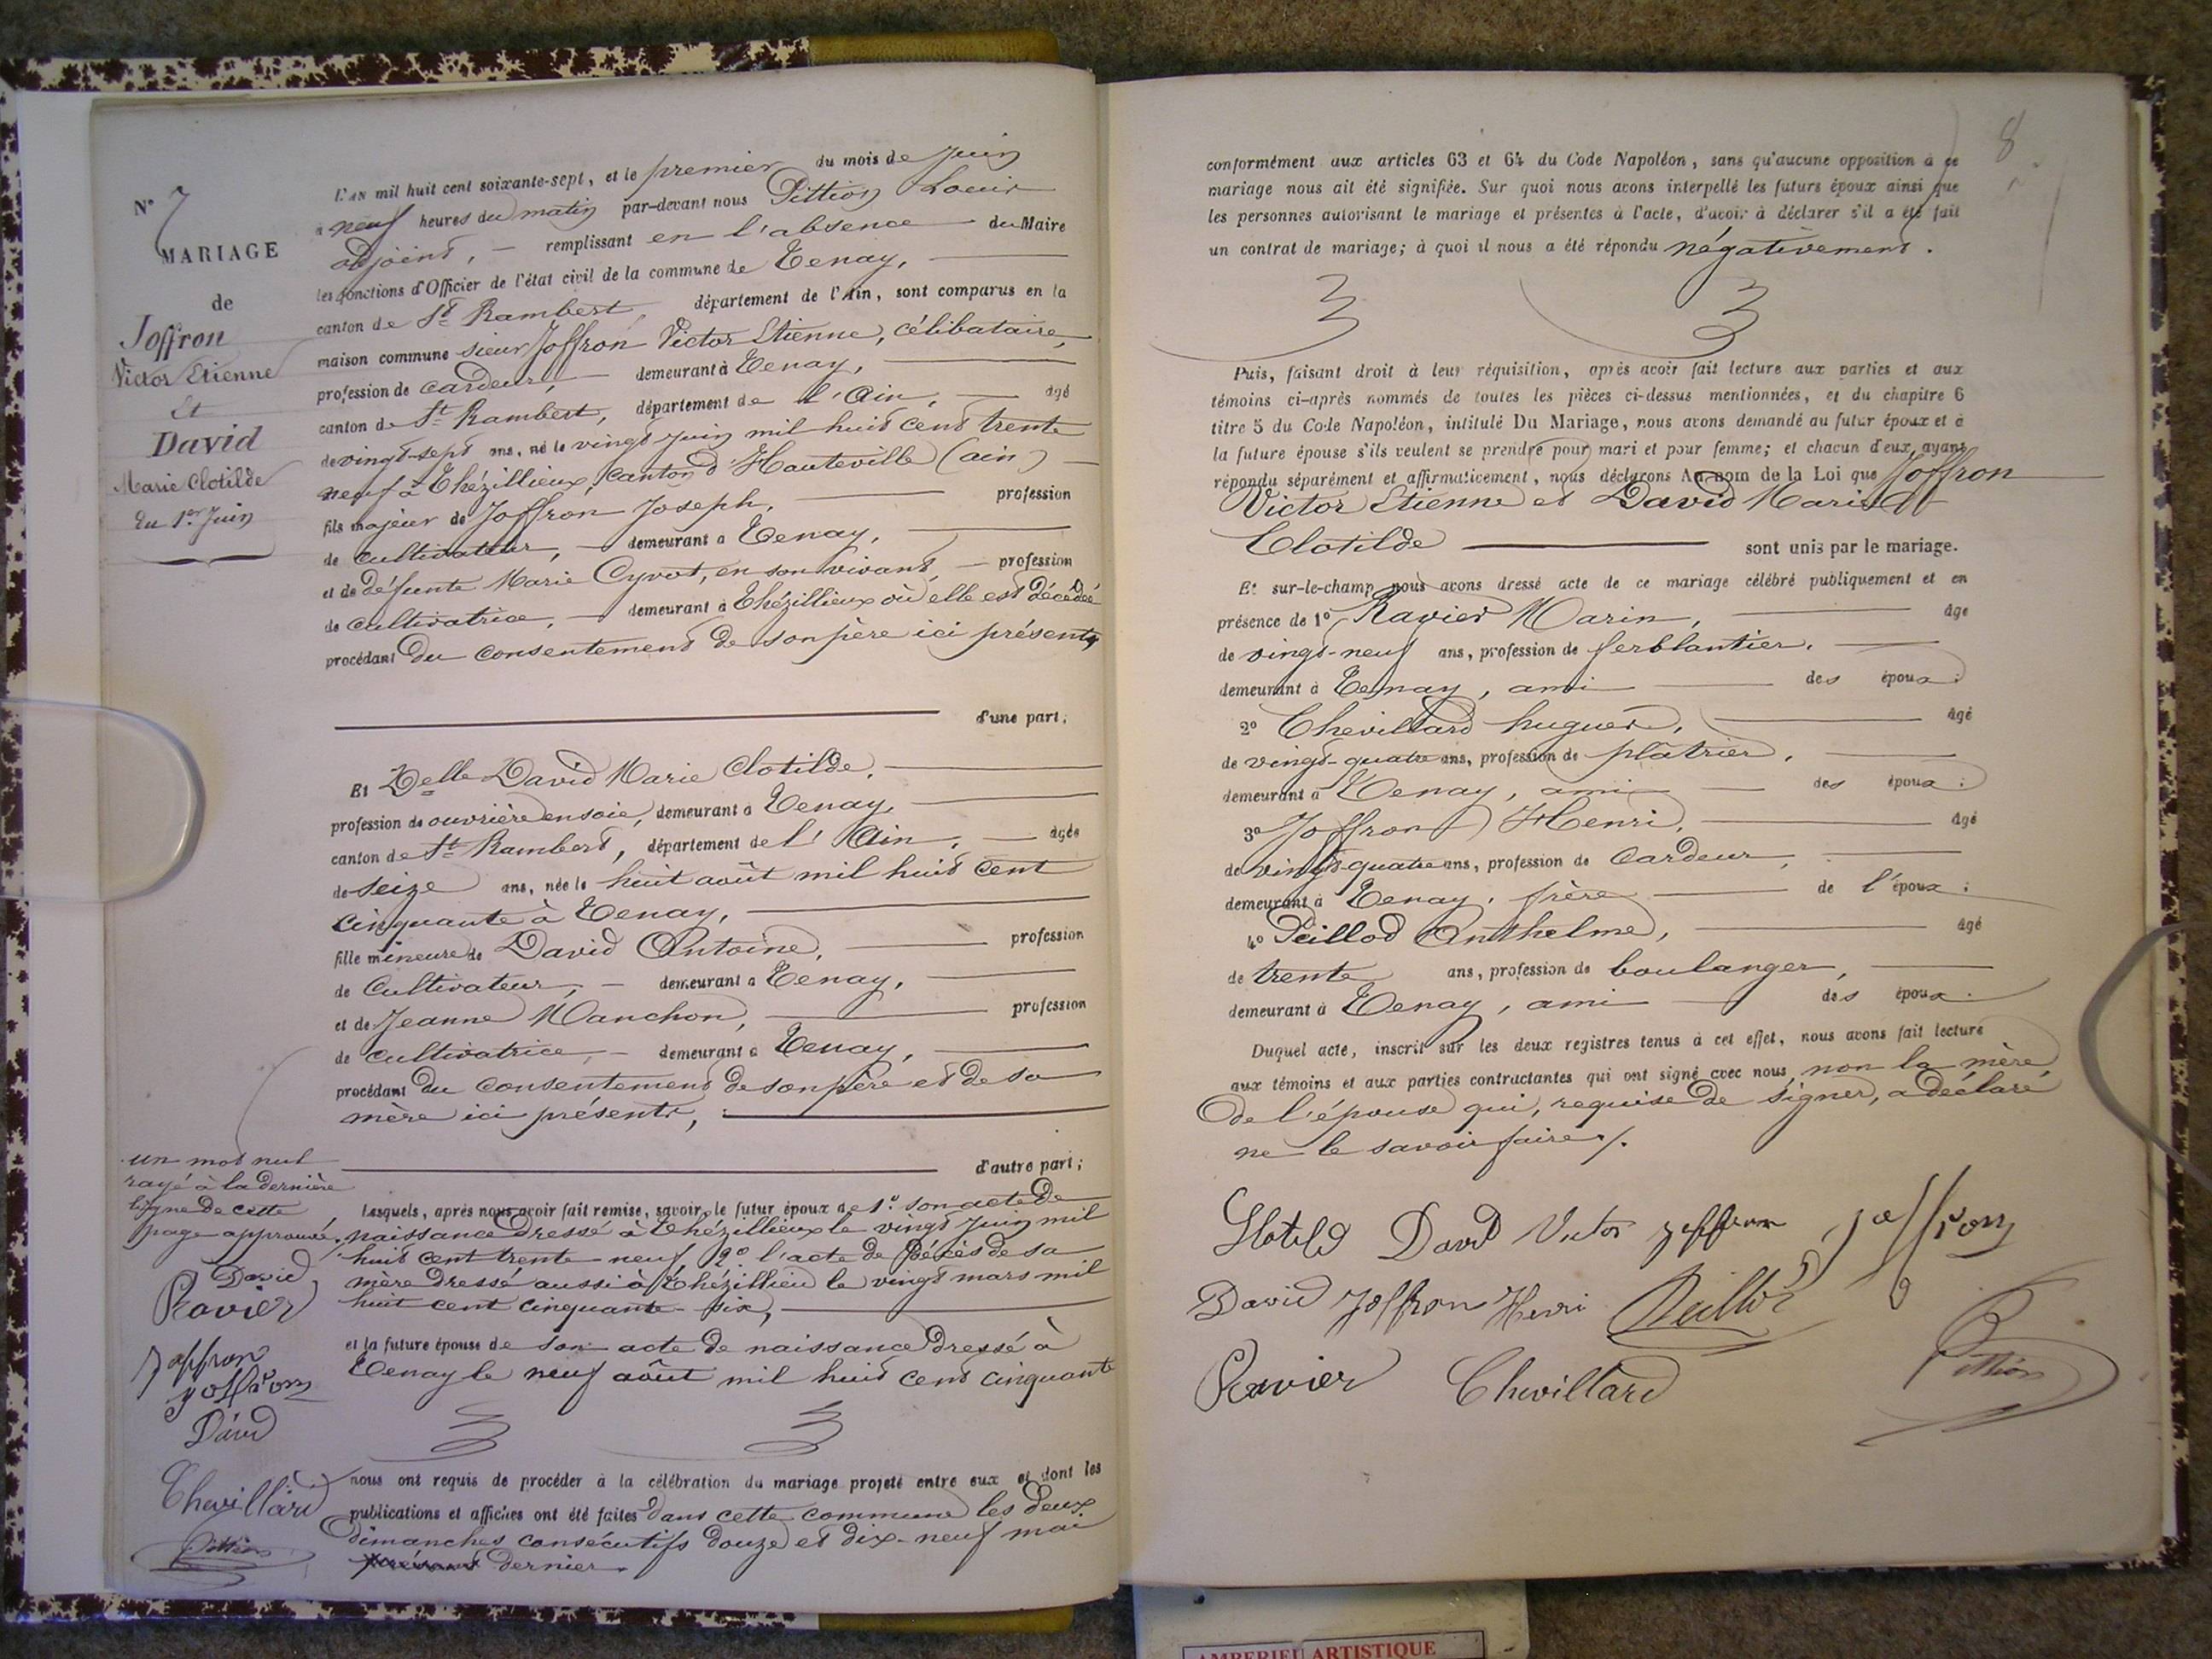 N° 7
MARIAGE
de
Joffron
Victor Etienne
Et
David
Marie Clotilde
du 1er Juin
L'AN mil huit cent soixante-sept, et le premier du mois de Juin
à neuf heures du matin par-devant nous Pittion Louis
adjoint, remplissant en l'absence du Maire
les fonctions d'Officier de l'état civil de la commune de Tenay,
canton de St Rambert, département de l'Ain, sont comparus en la
maison commune sieur Joffron Victor Etienne, célibataire,
profession de cardeur, demeurant à Tenay,
canton de St Rambert, département de l'Ain, âgé
de vingt-sept ans, né le vingt Juin mil huit cent trente
neuf à Thézillieux, canton d'Hauteville (ain)
fils majeur de Joffron Joseph, profession
de cultivateur, demeurant à Tenay,
et de défunte Marie Cyvot, en son vivant, profession
de cultivatrice, demeurant à Thézillieux où elle est décédée
procédant du consentement de son père ici présent,
d'une part;
Et Delle David Marie Clotilde,
profession de ouvrière en soie, demeurant à Tenay,
canton de St Rambert, département de l'Ain, âgée
de seize ans, née le huit août mil huit cent
cinquante à Tenay,
fille mineure de David Antoine, profession
de Cultivateur, demeurant à Tenay,
et de Jeanne Manchon, profession
de cultivatrice, demeurant à Tenay,
procédant du consentement de son père et de sa
mère ici présents,
d'autre part;
un mot nul
rayé à la dernière
ligne de cette
page approuvé.
David
Ravier
Joffron
Joffron
David
Chevillard
Pittion
Lesquels, après nous avoir fait remise, savoir, le futur époux de 1° son acte de
naissance dressé à Thézillieux le vingt Juin mil
huit cent trente neuf 2° l'acte de décès de sa
mère dressé aussi à Thézillieu le vingt mars mil
huit cent cinquante-six,
et la future épouse de son acte de naissance dressé à
Tenay le neuf août mil huit cent cinquante
nous ont requis de procéder à la célébration du mariage projeté entre eux et dont les
publications et affiches ont été faites dans cette commune les deux
dimanches consécutifs douze et dix-neuf mai
dernier.
8
conformément aux articles 63 et 64 du Code Napoléon, sans qu'aucune opposition à ce
mariage nous ait été signifiée. Sur quoi nous avons interpellé les futurs époux ainsi que
les personnes autorisant le mariage et présentes à l'acte, d'avoir à déclarer s'il a été fait
un contrat de mariage; à quoi il nous a été répondu négativement.
Puis, faisant droit à leur réquisition, après avoir fait lecture aux parties et aux
témoins ci-après nommés de toutes les pièces ci-dessus mentionnées, et du chapitre 6
titre 5 du Code Napoléon, intitulé Du Mariage, nous avons demandé au futur époux et à
la future épouse s'ils veulent se prendre pour mari et pour femme; et chacun d'eux, ayant
répondu séparément et affirmativement, nous déclarons Au nom de la Loi que Joffron
Victor Etienne et David Marie
Clotilde sont unis par le mariage.
Et sur-le-champ nous avons dressé acte de ce mariage célébré publiquement et en
présence de 1° Ravier Marin, âgé
de vingt-neuf ans, profession de ferblantier,
demeurant à Tenay, ami des époux;
2° Chevillard hugues, âgé
de vingt-quatre ans, profession de plâtrier,
demeurant à Tenay, ami des époux;
3° Joffron Henri, âgé
de vingt-quatre ans, profession de Cardeur,
demeurant à Tenay, frère de l'époux;
4° Peillod Anthelme, âgé
de trente ans, profession de boulanger,
demeurant à Tenay, ami des époux.
Duquel acte, inscrit sur les deux registres tenus à cet effet, nous avons fait lecture
aux témoins et aux parties contractantes qui ont signé avec nous, non la mère
de l'épouse qui, requise de signer, a déclaré
ne le savoir faire./.
Clotild David Victor Joffron Joffron
David Joffron Henri Peillod
Ravier Chevillard Pittion
AMBERIEU ARTISTIQUE